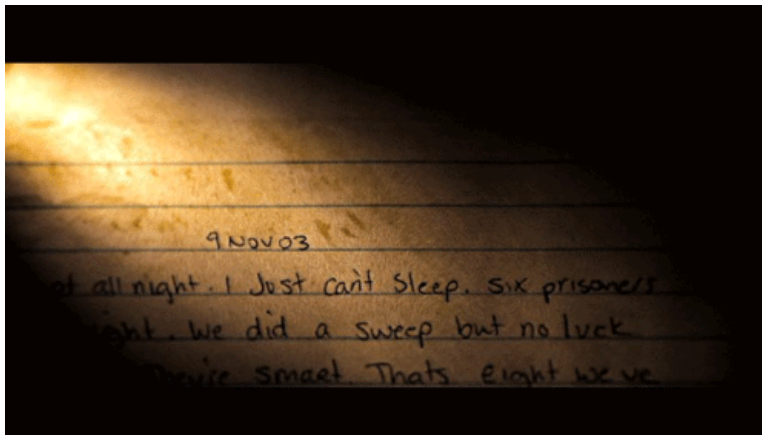 9 NOV 03
all night. I Just can't Sleep. Six prisoners
We did a sweep but no luck
smart. Thats eight we've